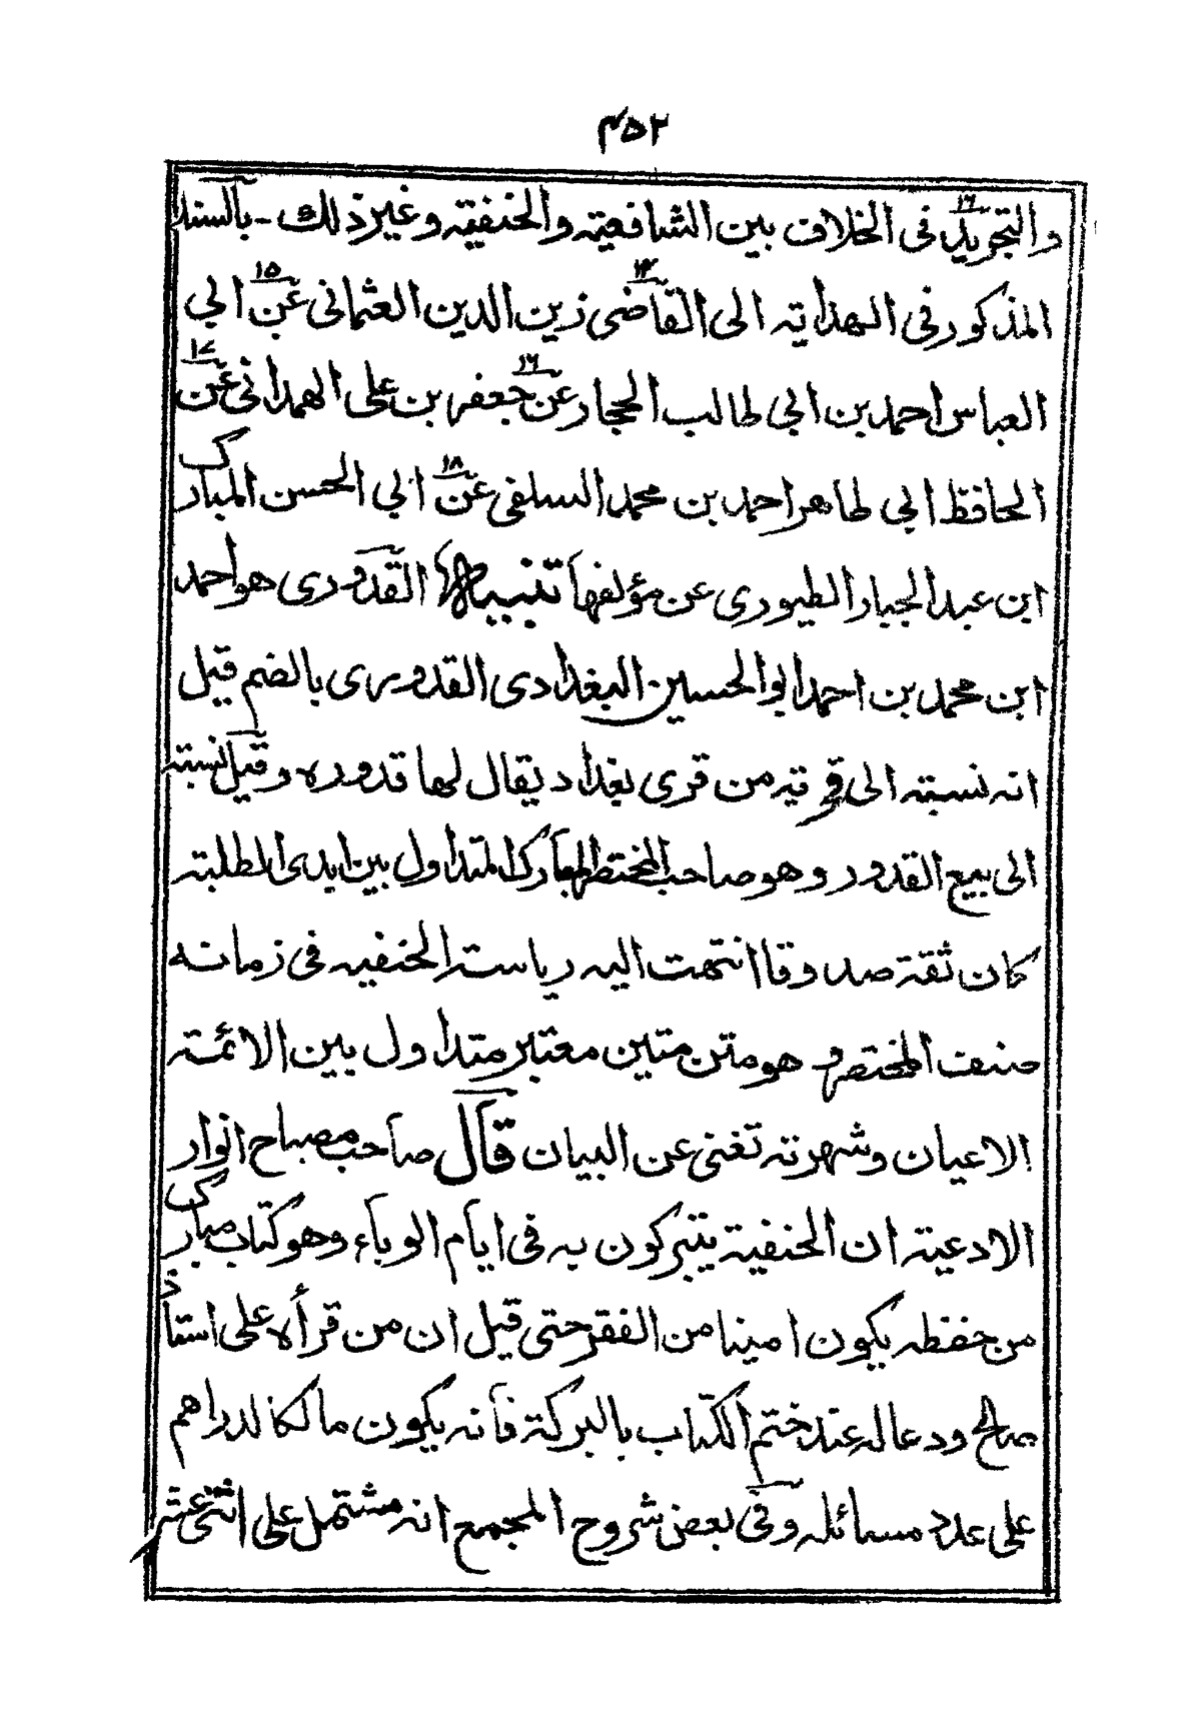 ٤٥٢
والتجريد في الخلاف بين الشافعية والحنفية وغير ذلك - بالسند
المذكور في الهداية الى القاضي زين الدين العثماني ١٥ عن ابي
العباس احمد بن ابي طالب الحجار ١٦ عن جعفر بن على الهمداني ١٧ عن
الحافظ ابي طاهر احمد بن محمد السلفي ١٨ عن ابي الحسن المبارك
ابن عبد الجبار الطيوري عن مؤلفها تنبيه القدوري هو احمد
ابن محمد بن احمد ابو الحسين البغدادى القدورى بالضم قيل
انه نسبته الى قرية من قرى بغداد يقال لها قدوره وقيل نسبته
الى بيع القدور وهو صاحب المختصر المبارك المتداول بين ايدى الطلبة
كان ثقة صدوقا انتهت اليه رياسة الحنفيه في زمانه
صنف المختصر وهو متن متين معتبر متداول بين الائمة
الاعيان وشهرته تغنى عن البيان قال صاحب مصباح انوار
الادعية ان الحنفية يتبركون به في ايام الوباء وهو كتاب مبارك
من حفظه يكون امينا من الفقر حتى قيل ان من قرأه على استاذ
صالح ودعا له عند ختم الكتاب بالبركة فانه يكون مالكا لدراهم
على عدد مسائله وفي بعض شروح المجمع انه مشتمل على اثنى عشر